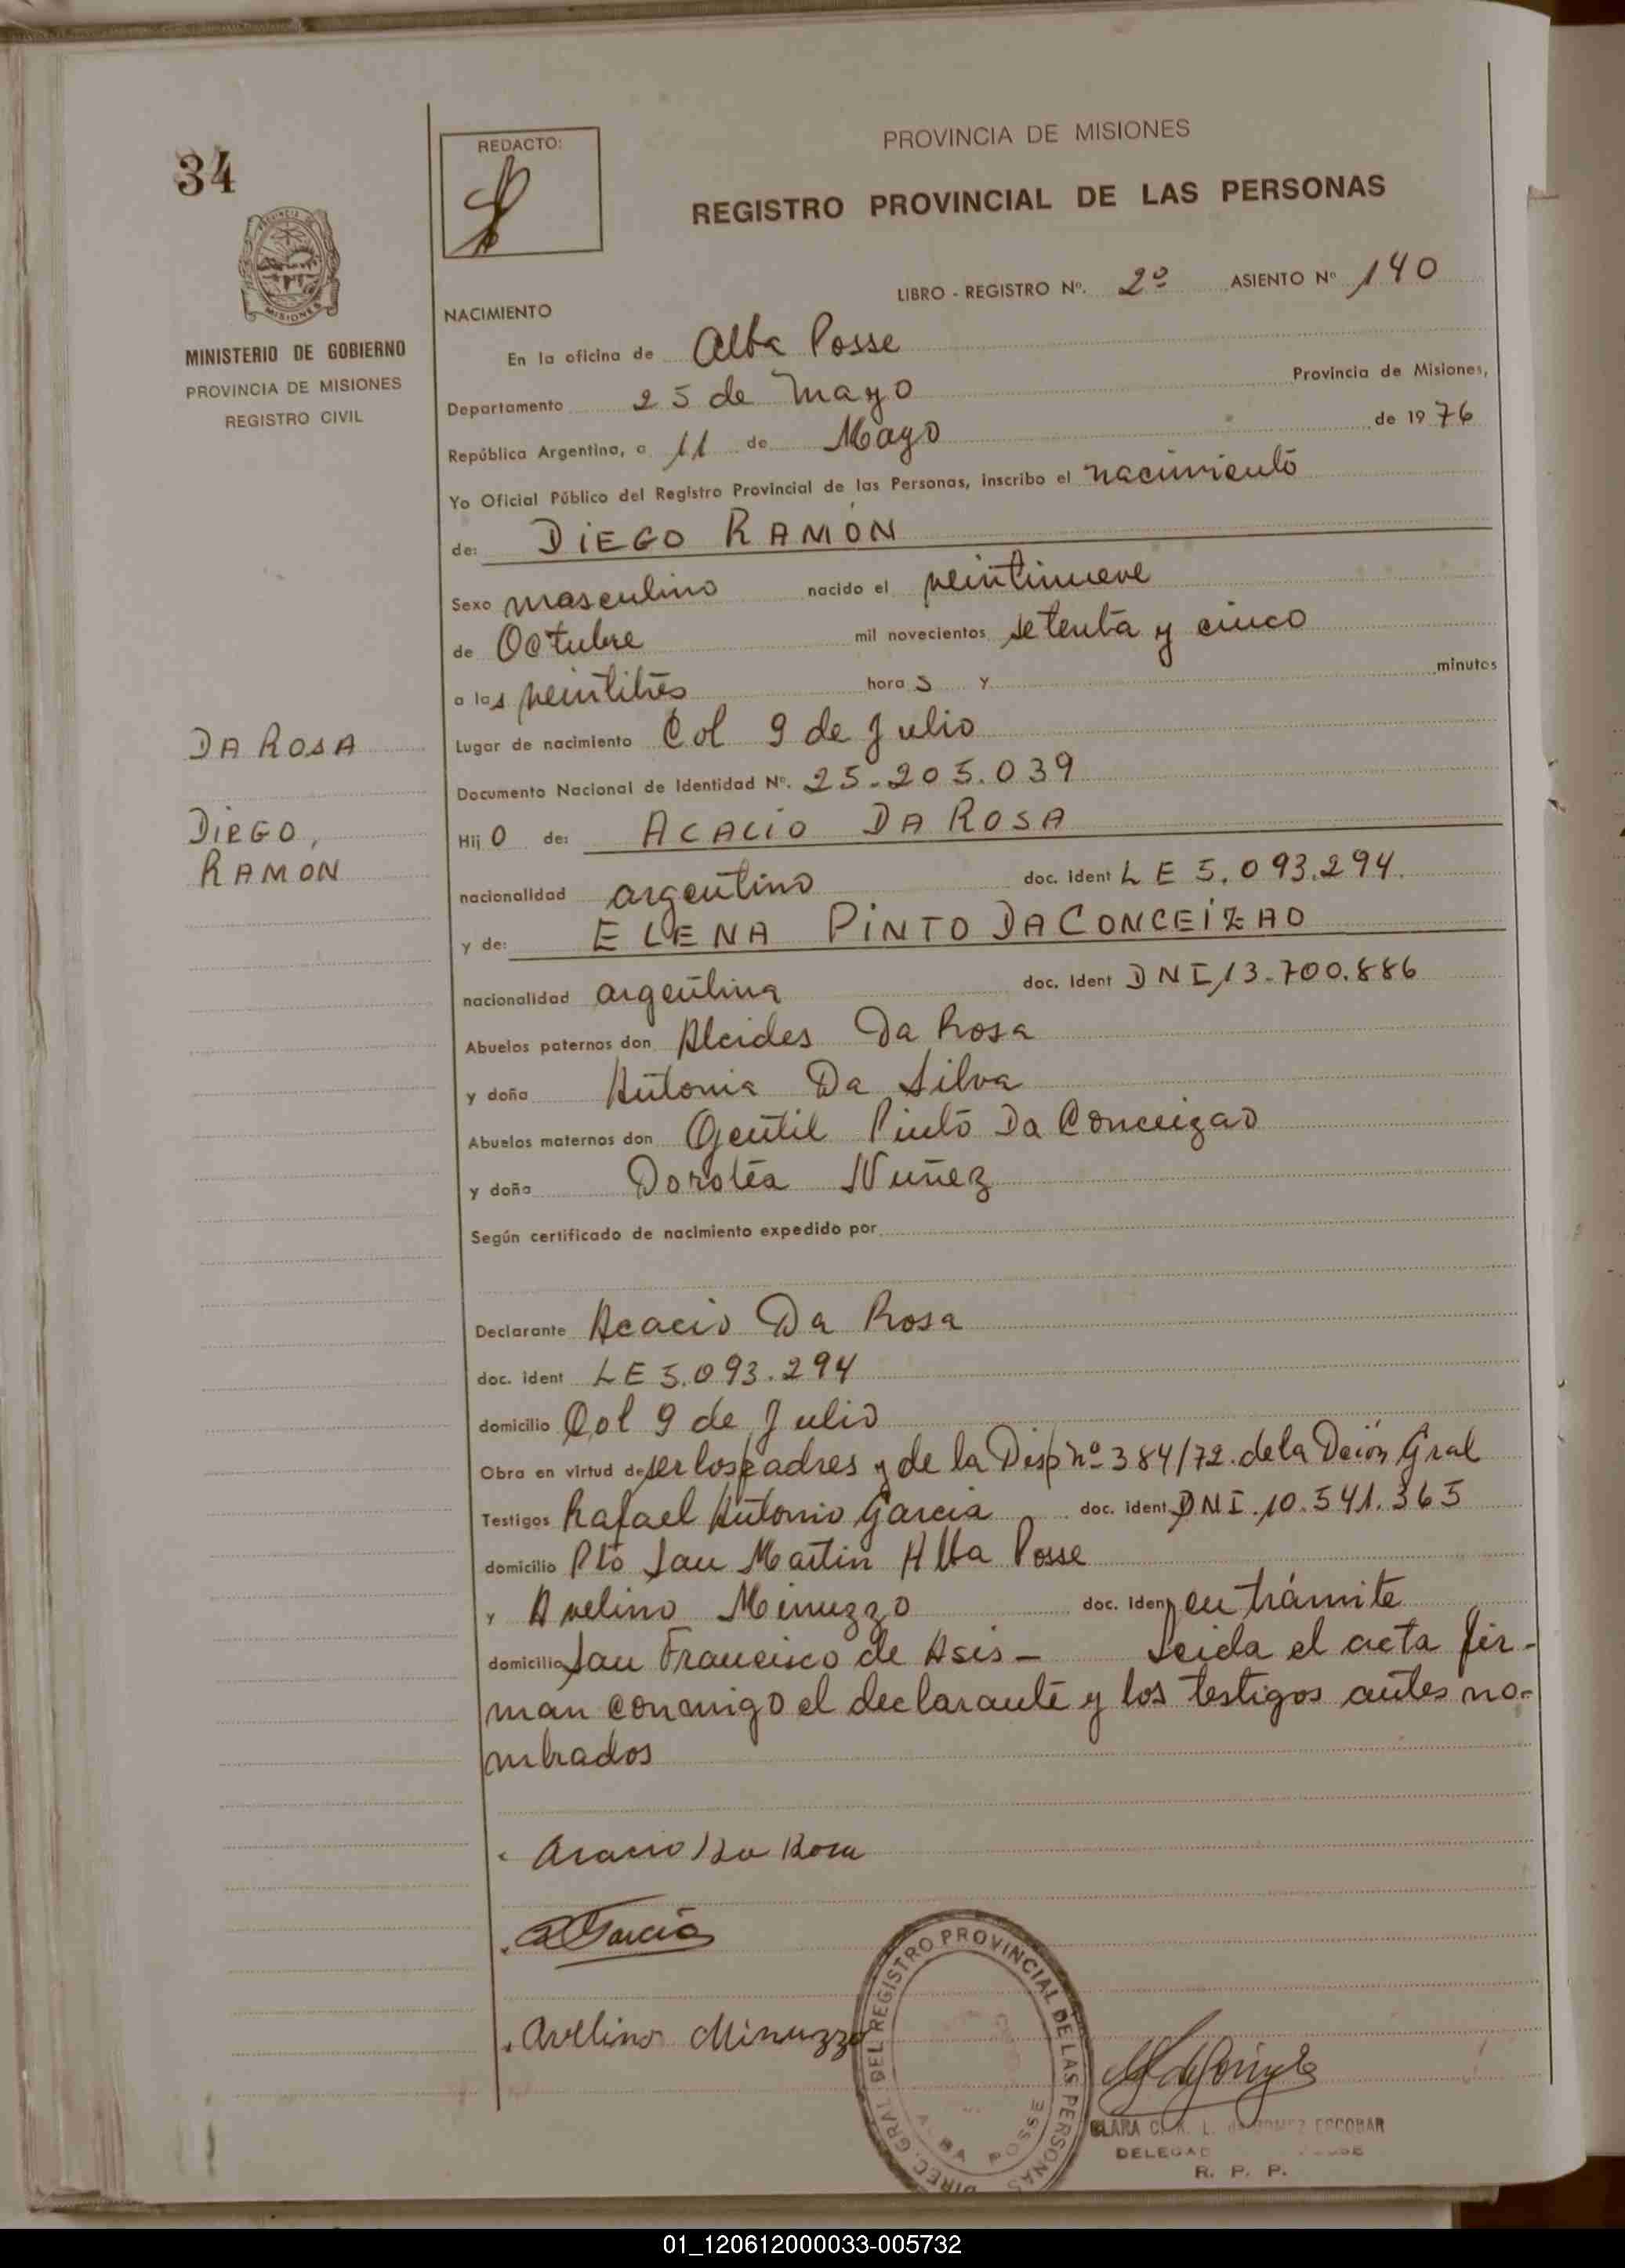 34
REDACTO:
PROVINCIA DE MISIONES
REGISTRO PROVINCIAL DE LAS PERSONAS
MINISTERIO DE GOBIERNO
PROVINCIA DE MISIONES
REGISTRO CIVIL
LIBRO - REGISTRO Nº. 2º ASIENTO Nº 140
NACIMIENTO
En la oficina de Alba Posse
Departamento 25 de Mayo Provincia de Misiones,
República Argentina, a 11 de Mayo de 1976
Yo Oficial Público del Registro Provincial de las Personas, inscribo el nacimiento
de: DIEGO RAMÓN
Sexo masculino nacido el veintinueve
de Octubre mil novecientos setenta y cinco
a las veintitrés horas y minutos
Lugar de nacimiento Col 9 de Julio
Documento Nacional de Identidad Nº. 25.205.039
DA ROSA
DIEGO,
RAMON
Hijo de: ACACIO DA ROSA
nacionalidad argentino doc. ident LE 5.093.294.
y de: ELENA PINTO DA CONCEIZAO
nacionalidad argentina doc. ident DNI 13.700.886
Abuelos paternos don Alcides Da Rosa
y doña Antonia Da Silva
Abuelos maternos don Gentil Pinto Da Conceizao
y doña Dorotea Nuñez
Según certificado de nacimiento expedido por
Declarante Acacio Da Rosa
doc. ident LE 5.093.294
domicilio Col 9 de Julio
Obra en virtud de ser los padres y de la Disp nº 384/72 de la Dción Gral
Testigos Rafael Antonio Garcia doc. ident DNI. 10.541.365
domicilio Pto San Martin Alba Posse
y Avelino Minuzzo doc. ident en trámite
domicilio San Francisco de Asis - Leida el acta fir-
man conmigo el declarante y los testigos antes no-
mbrados
Acacio Da Rosa
Garcia
Avelino Minuzzo
DIREC. GRAL DEL REGISTRO PROVINCIAL DE LAS PERSONAS
ALBA POSSE
CLARA C. R. L. de GOMEZ ESCOBAR
R. P. P.
01_120612000033-005732